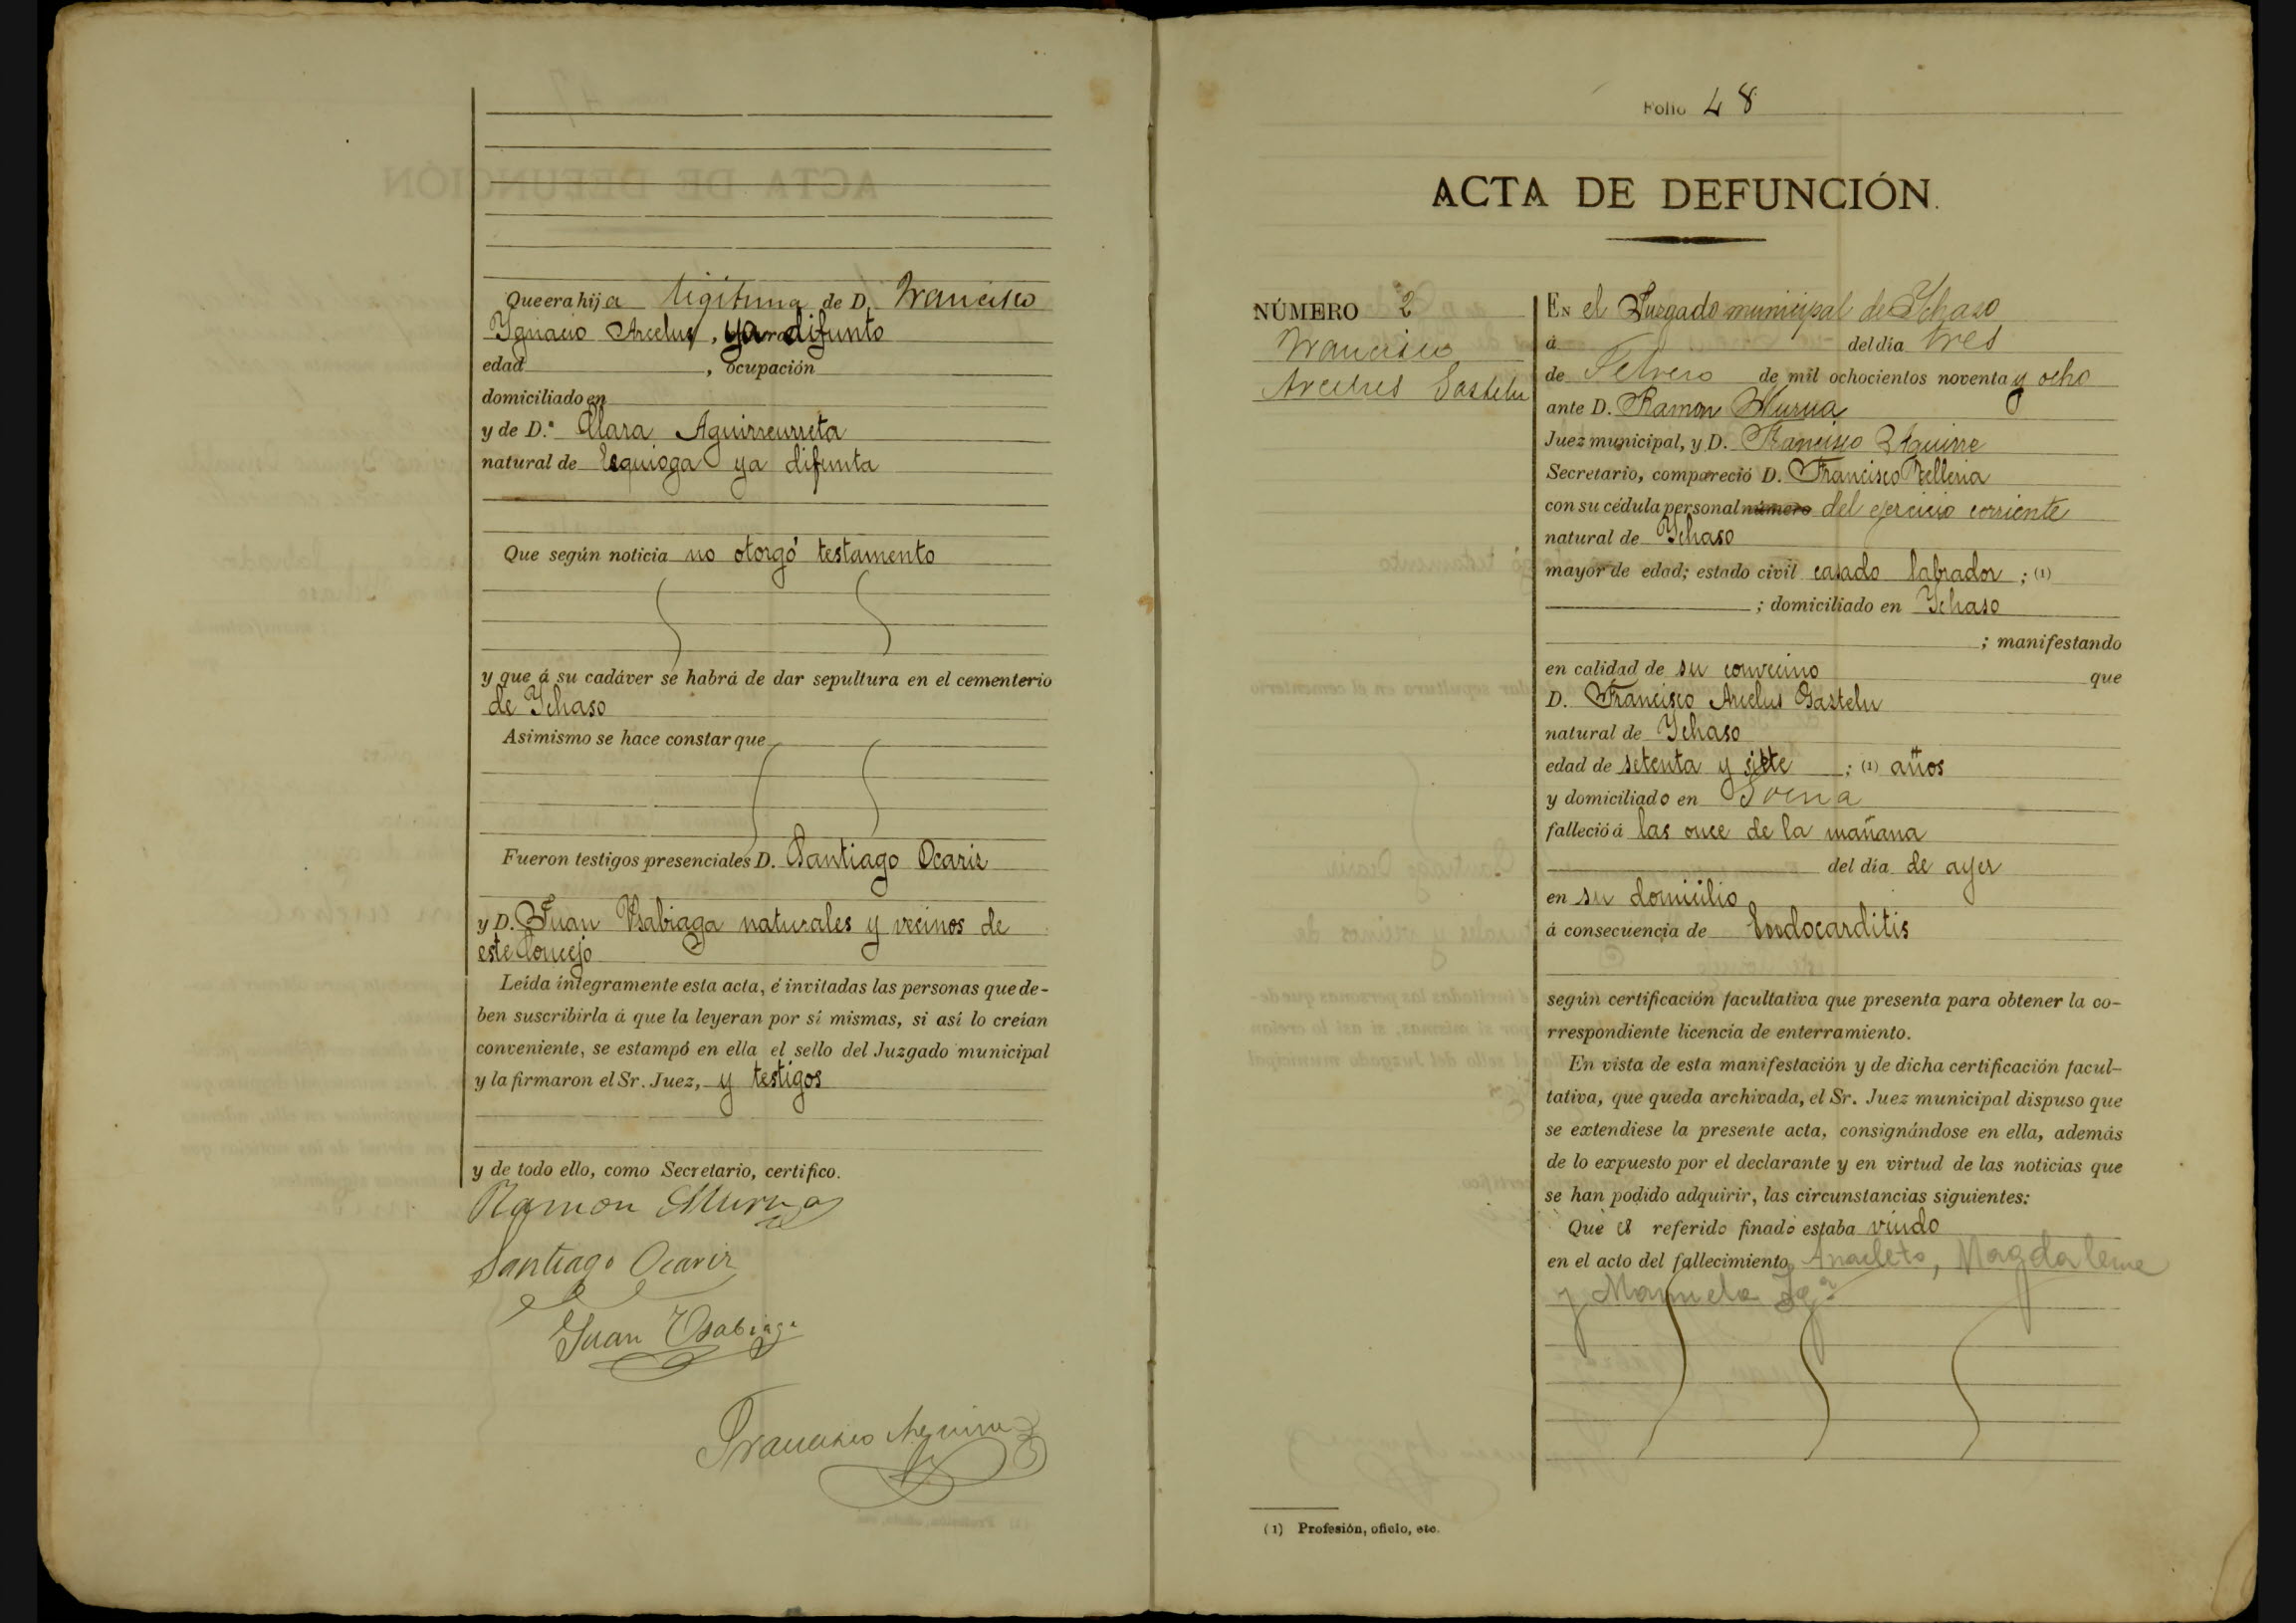 Que era hija legitima de D. Francisco
Ygnacio Arcelus, ya difunto
edad , ocupación
domiciliado en
y de D.ª Clara Aguirreurreta
natural de Esquioga ya difunta
Que según noticia no otorgó testamento
y que á su cadáver se habrá de dar sepultura en el cementerio
de Ychaso
Asimismo se hace constar que
Fueron testigos presenciales D. Santiago Ocariz
y D. Juan Ysabiaga naturales y vecinos de
este Concejo
Leída íntegramente esta acta, é invitadas las personas que de-
ben suscribirla á que la leyeran por sí mismas, si así lo creían
conveniente, se estampó en ella el sello del Juzgado municipal
y la firmaron el Sr. Juez, y testigos
y de todo ello, como Secretario, certifico.
Ramon Murua
Santiago Ocariz
Juan Ysabiaga
Francisco Aguirre
Folio 48
ACTA DE DEFUNCIÓN.
NÚMERO 2
Francisco
Arcelus Gastelu
En el Juzgado municipal de Ychaso
á del día tres
de Febrero de mil ochocientos noventa y ocho
ante D. Ramon Murua
Juez municipal, y D. Francisco Aguirre
Secretario, compareció D. Francisco Telleria
con su cédula personal número del ejercicio corriente
natural de Ychaso
mayor de edad; estado civil casado labrador ; (1)
; domiciliado en Ychaso
; manifestando
en calidad de su convecino que
D. Francisco Arcelus Gastelu
natural de Ychaso
edad de setenta y siete ; (1) años
y domiciliado en
falleció á las once de la mañana
del día de ayer
en su domicilio
á consecuencia de Endocarditis
según certificación facultativa que presenta para obtener la co-
rrespondiente licencia de enterramiento.
En vista de esta manifestación y de dicha certificación facul-
tativa, que queda archivada, el Sr. Juez municipal dispuso que
se extendiese la presente acta, consignándose en ella, además
de lo expuesto por el declarante y en virtud de las noticias que
se han podido adquirir, las circunstancias siguientes:
Que el referido finado estaba viudo
en el acto del fallecimiento, Anacleto, Magdalena
y Manuela Igª
(1) Profesión, oficio, etc.